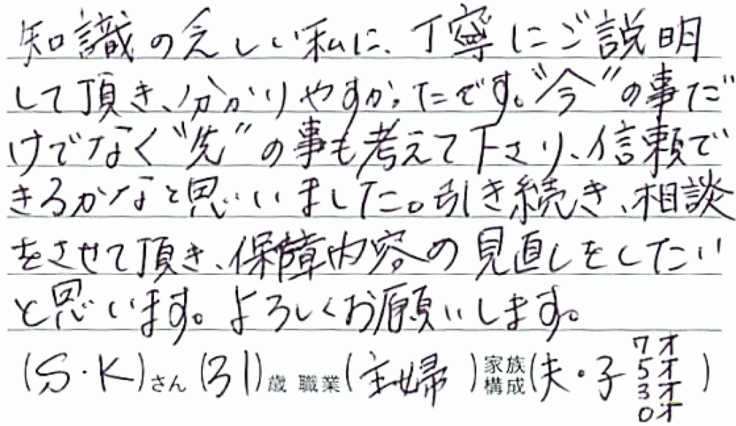 知識の乏しい私に、丁寧にご説明
して頂き、分かりやすかったです。“今”の事だ
けでなく“先”の事も考えて下さり、信頼で
きるかなと思いいました。引き続き、相談
をさせて頂き、保障内容の見直しをしたい
と思います。よろしくお願いします。
(S・K)さん(31)歳 職業(主婦)家族構成(夫・子 7才 5才 3才 0才)